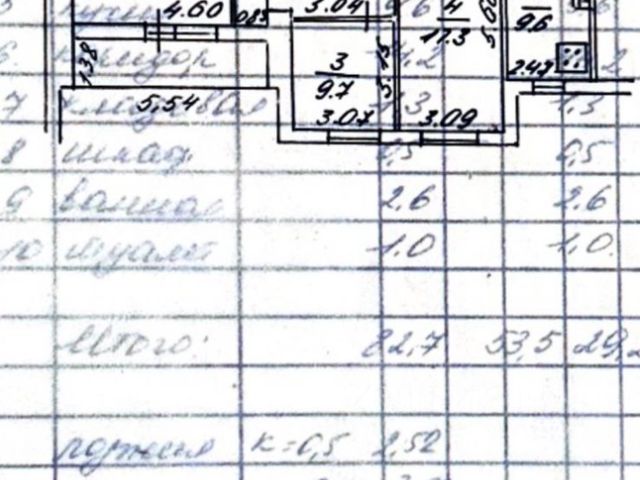 5 кухня 4.60 085 3.04 9.6 4 17.3 5.62 9.6
6. коридор 1.38 3 9.7 3.15 2.42
7 кладовая 5.54 3.07 1,3 3.09 1,3
8 шкаф. 0,5 0,5
9 ванная 2.6 2.6
10 туалет 1.0 1,0.
Итого: 82,7 53,5 29,2
лоджия к=0,5 2,52